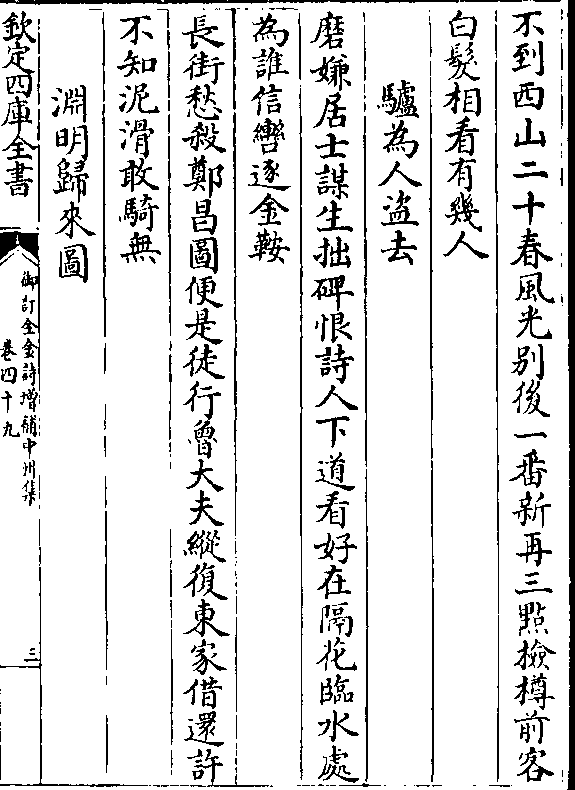 不到西山二十春風光别後一番新再三㸃檢樽前客
白髮相看有幾人
驢為人盗去
磨嫌居士謀生拙碑恨詩人下道看好在隔花臨水處
為誰信轡逐金鞍
長街愁殺鄭昌圖便是徒行魯大夫縱復東家借還許
不知泥滑敢騎無
淵明歸來圖
欽定四庫全書
御訂全金詩増補中州集
卷四十九
三